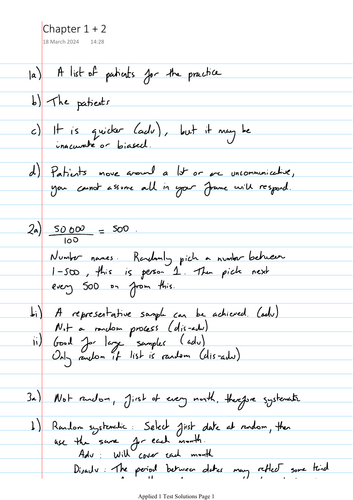 Chapter 1 + 2
18 March 2024 14:28
1a) A list of patients for the practice
b) The patients
c) It is quicker (adv), but it may be
inaccurate or biased.
d) Patients move around a lot or are uncommunicative,
you cannot assume all in your frame will respond.
2a) 50 000 / 100 = 500.
Number names. Randomly pick a number between
1-500, this is person 1. Then pick next
every 500 on from this.
bi) A representative sample can be achieved. (adv)
Not a random process (dis-adv)
ii) Good for large samples (adv)
Only random if list is random (dis-adv)
3a) Not random, first of every month, therefore systematic
b) Random systematic: Select first date at random, then
use the same for each month.
Adv: Will cover each month
Disadv: The period between dates may reflect some trend
Applied 1 Test Solutions Page 1